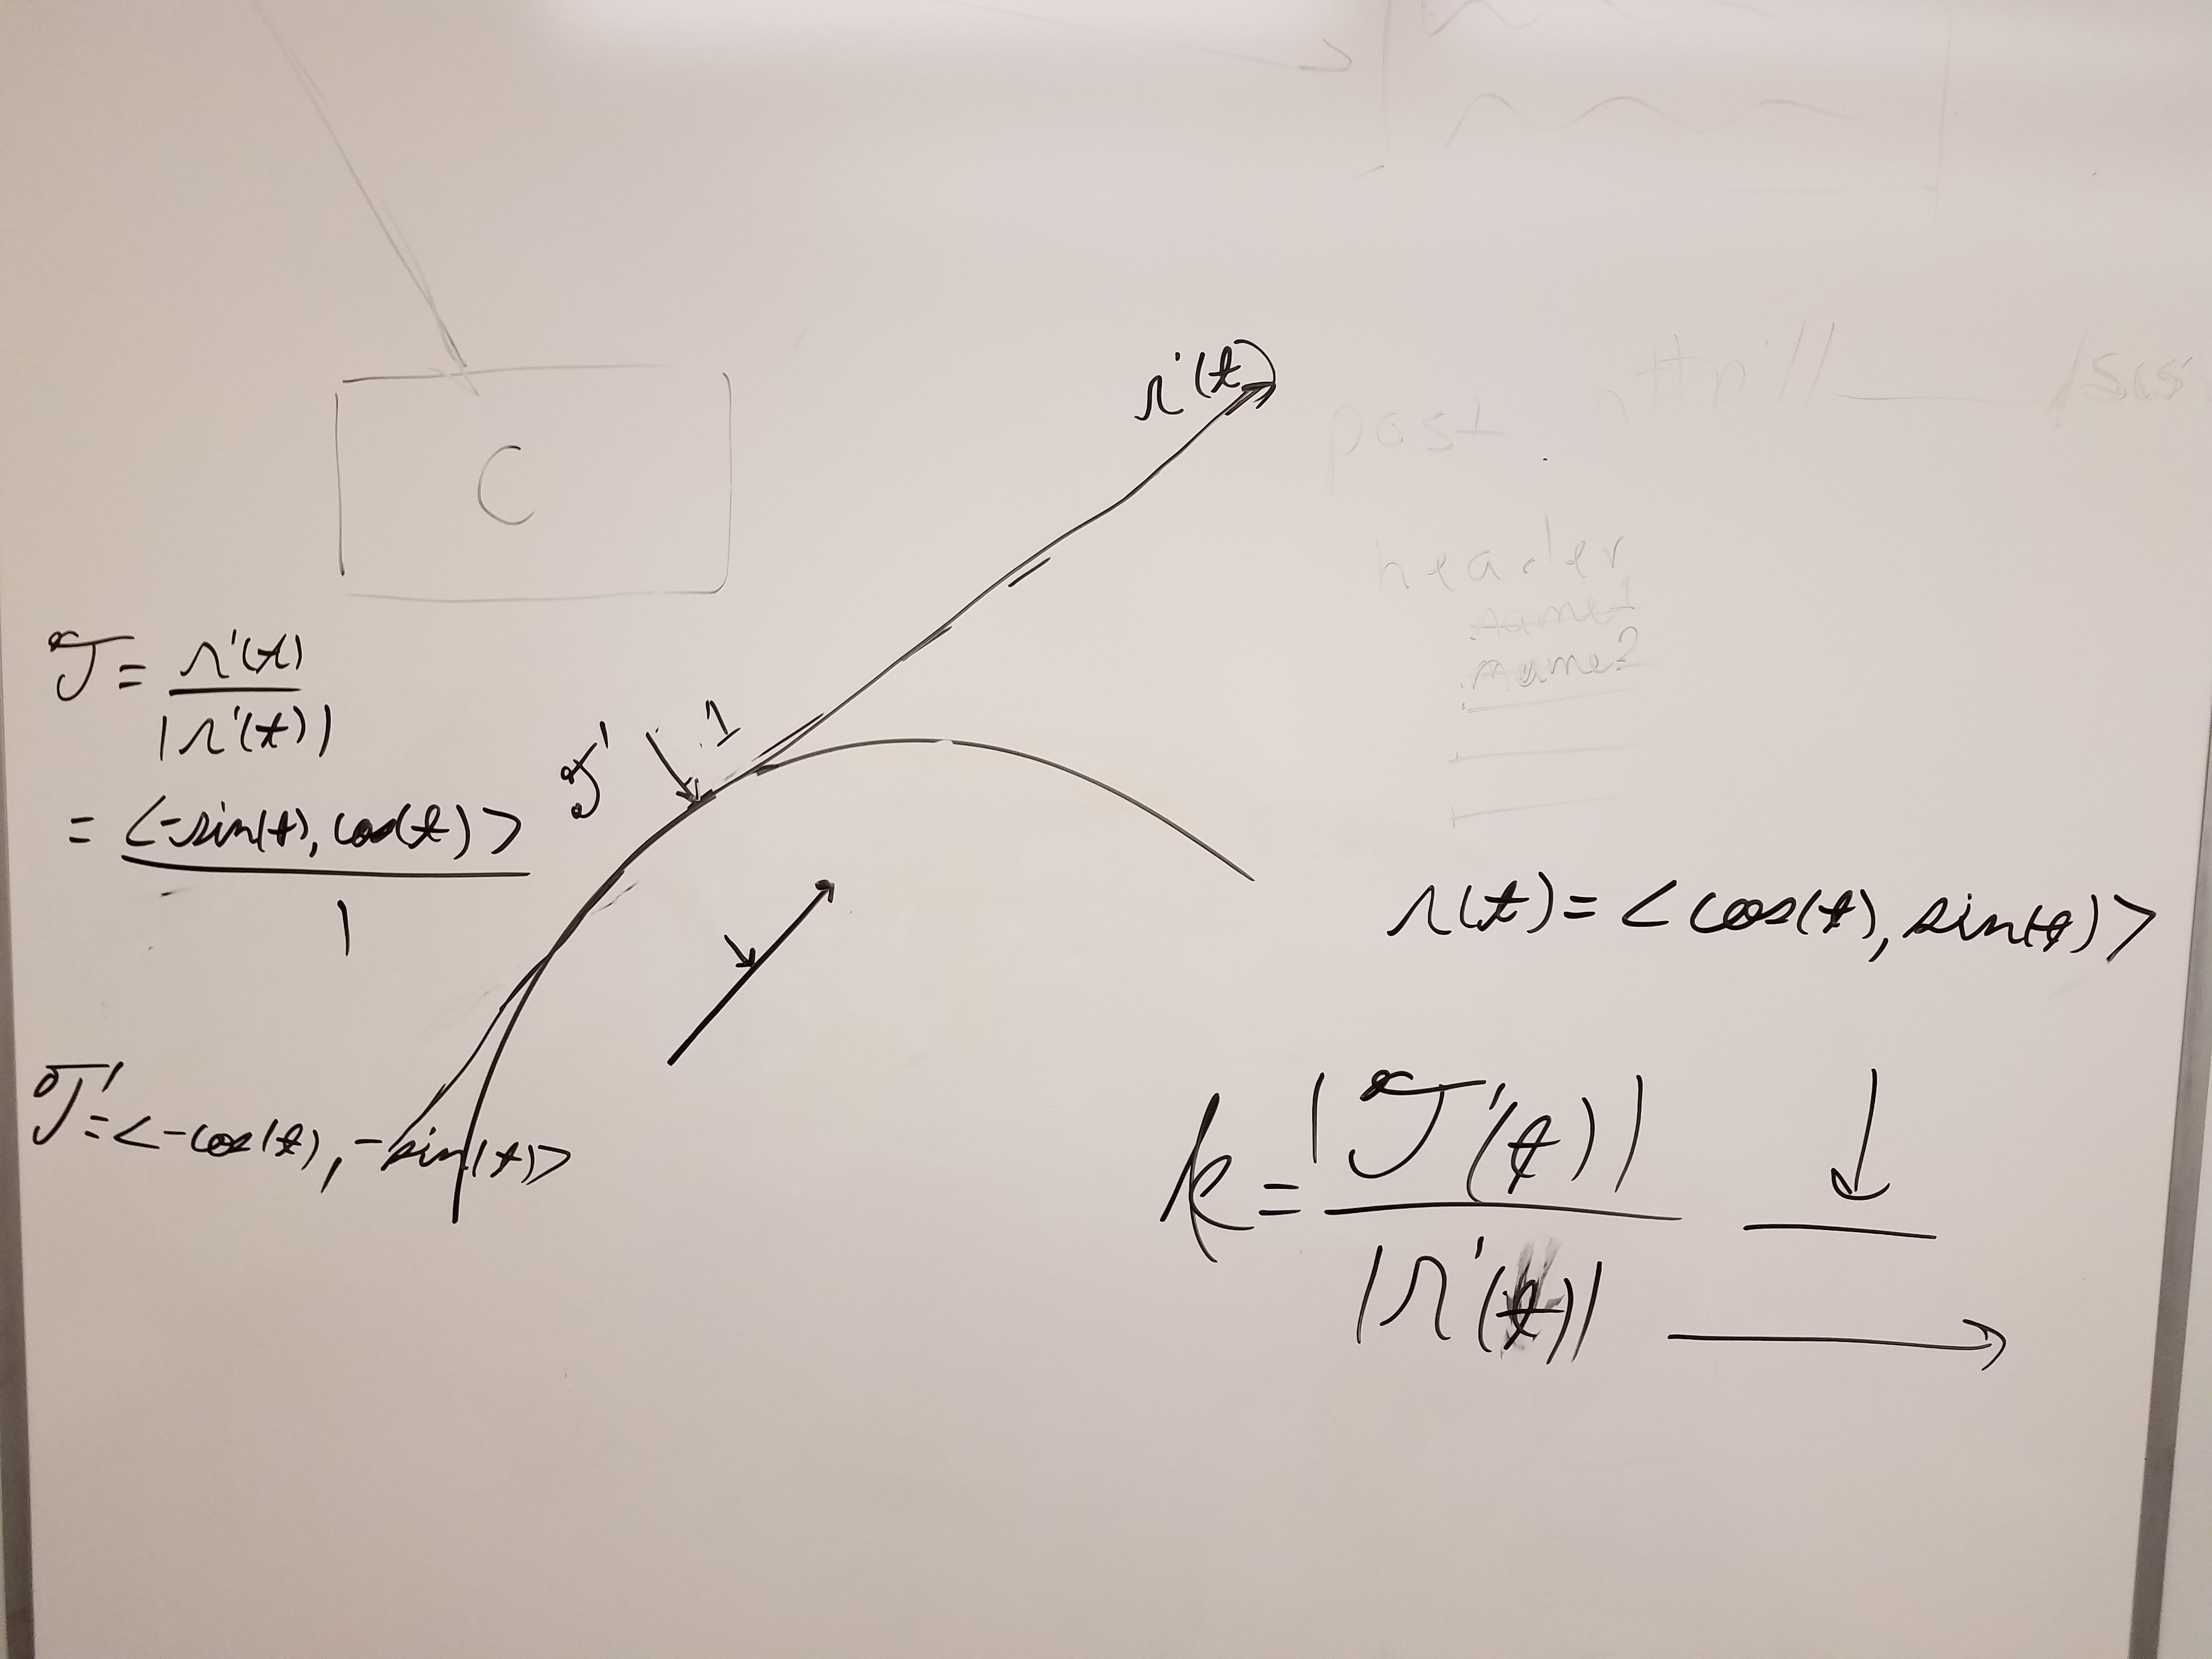 C
r'(t)
post http://______/sas
header
name1
name2
T = r'(t)
|r'(t)|
= <-sin(t), cos(t)>
1
T' = <-cos(t), -sin(t)>
T' 1
r(t) = <cos(t), sin(t)>
k = |T'(t)|
|r'(t)|